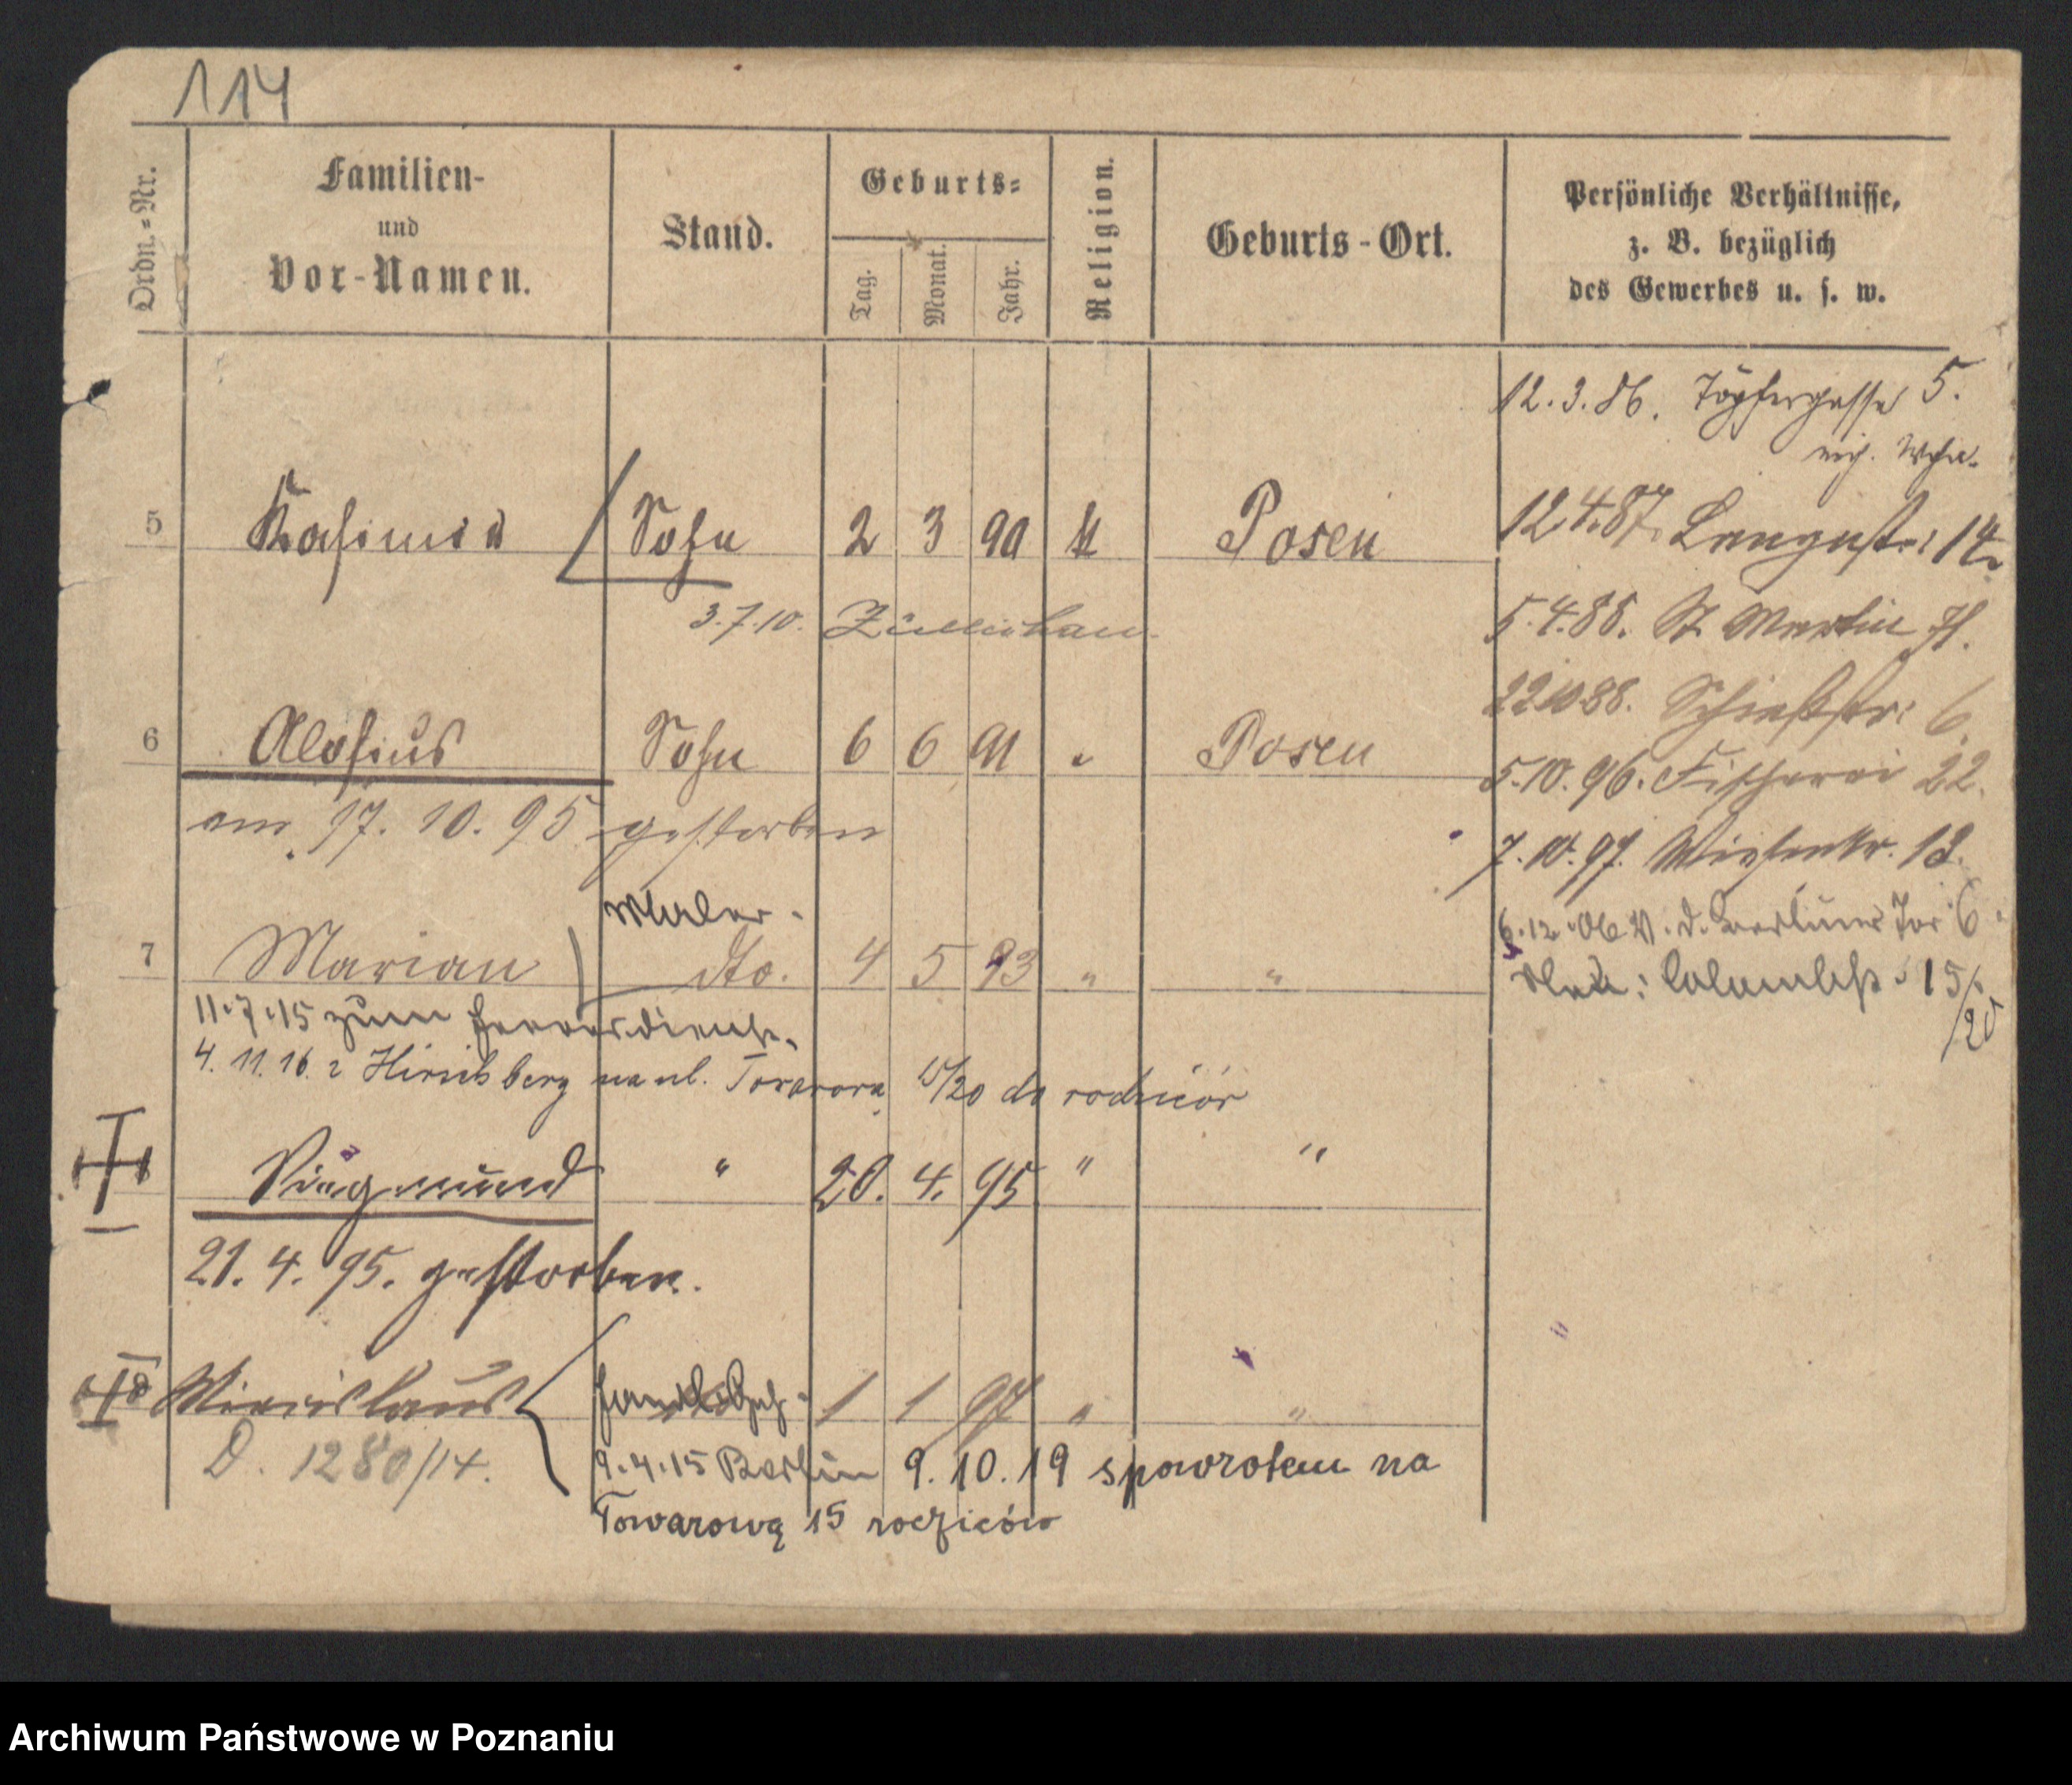 114
Ordn.=Nr.
Familien-
und
Vor-Namen.
Stand.
Geburts=
Tag.
Monat.
Jahr.
Religion.
Geburts-Ort.
Persönliche Verhältnisse,
z. B. bezüglich
des Gewerbes u. s. w.
12.3.86. Töpfergasse 5.
5 Kasimir Sohn 2 3 90 k Posen
12.4.87. Langestr: 14.
3.7.10. Züllichau.
5.4.88. St Martin
22.10.88. Schießstr: 6.
6 Alosius Sohn 6 6 91 " Posen
5.10.96. Fischerei 22.
am 17. 10. 95 gestorben
7.10.97. Wiesenstr. 13.
Maler.
6.12.06 V. d. Berliner Tor 6.
7 Marian dto. 4 5 93 " "
15/20
11.7.15 zum Heeresdienst.
4. 11. 16 z Hirschberg na ul. Towarową 15/20 do rodziców
Siegmund " 20. 4. 95 " "
21. 4. 95. gestorben.
8 1 1 97 " "
D. 1280/14.
9.4.15 Berlin 9.10.19 spowrotem na
Towarową 15 rodziców
Archiwum Państwowe w Poznaniu